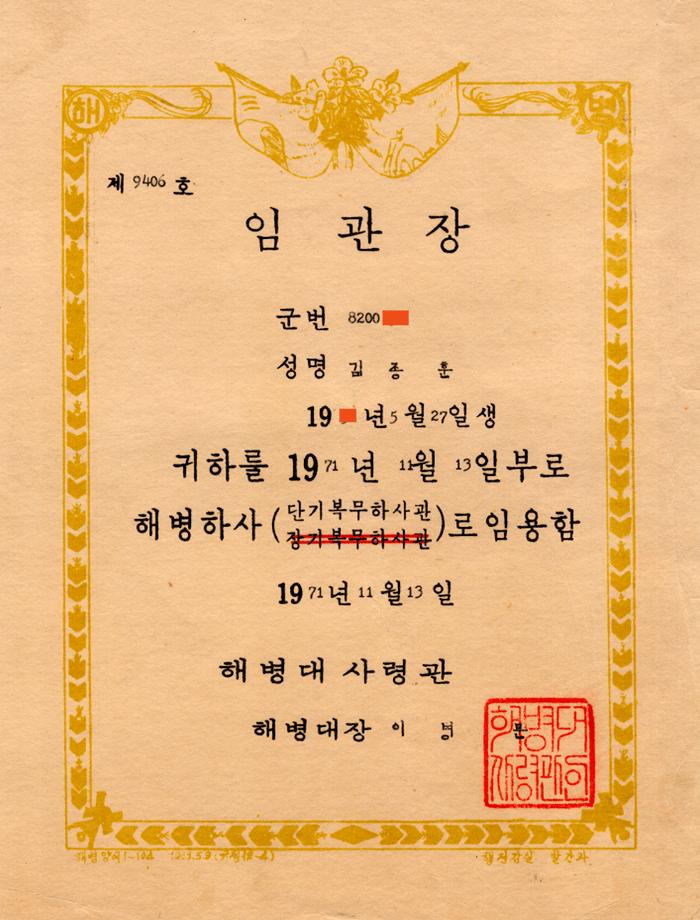 해 병
제 9406 호
임 관 장
군번 8200
성명 김 종 훈
19 년 5 월 27일 생
귀하를 19 71 년 11월 13일부로
해병하사 (단기복무하사관
장기복무하사관) 로 임용함
19 71 년 11 월 13 일
해병대 사령관
해병대장 이 병 문
해병대
사령관인